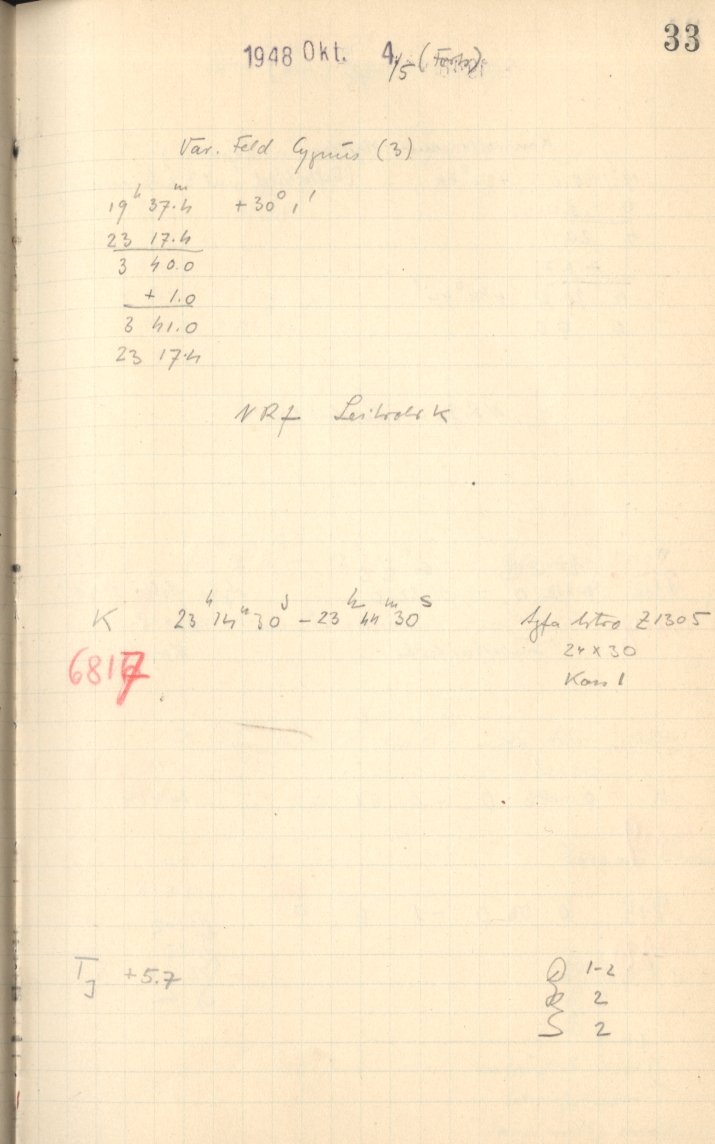 33
1948 Okt. 4./5 (Forts.)
Var. Feld Cygnus (3)
19ʰ 37.4ᵐ +30° 1'
23 17.4
3 40.0
+ 1.0
3 41.0
23 17.4
NRf
K 23ʰ 14ᵐ 30ˢ – 23ʰ 44ᵐ 30ˢ Agfa Astro Z1305
6817 24 x 30
Kass 1
TJ +5.7
1-2
R 2
S 2